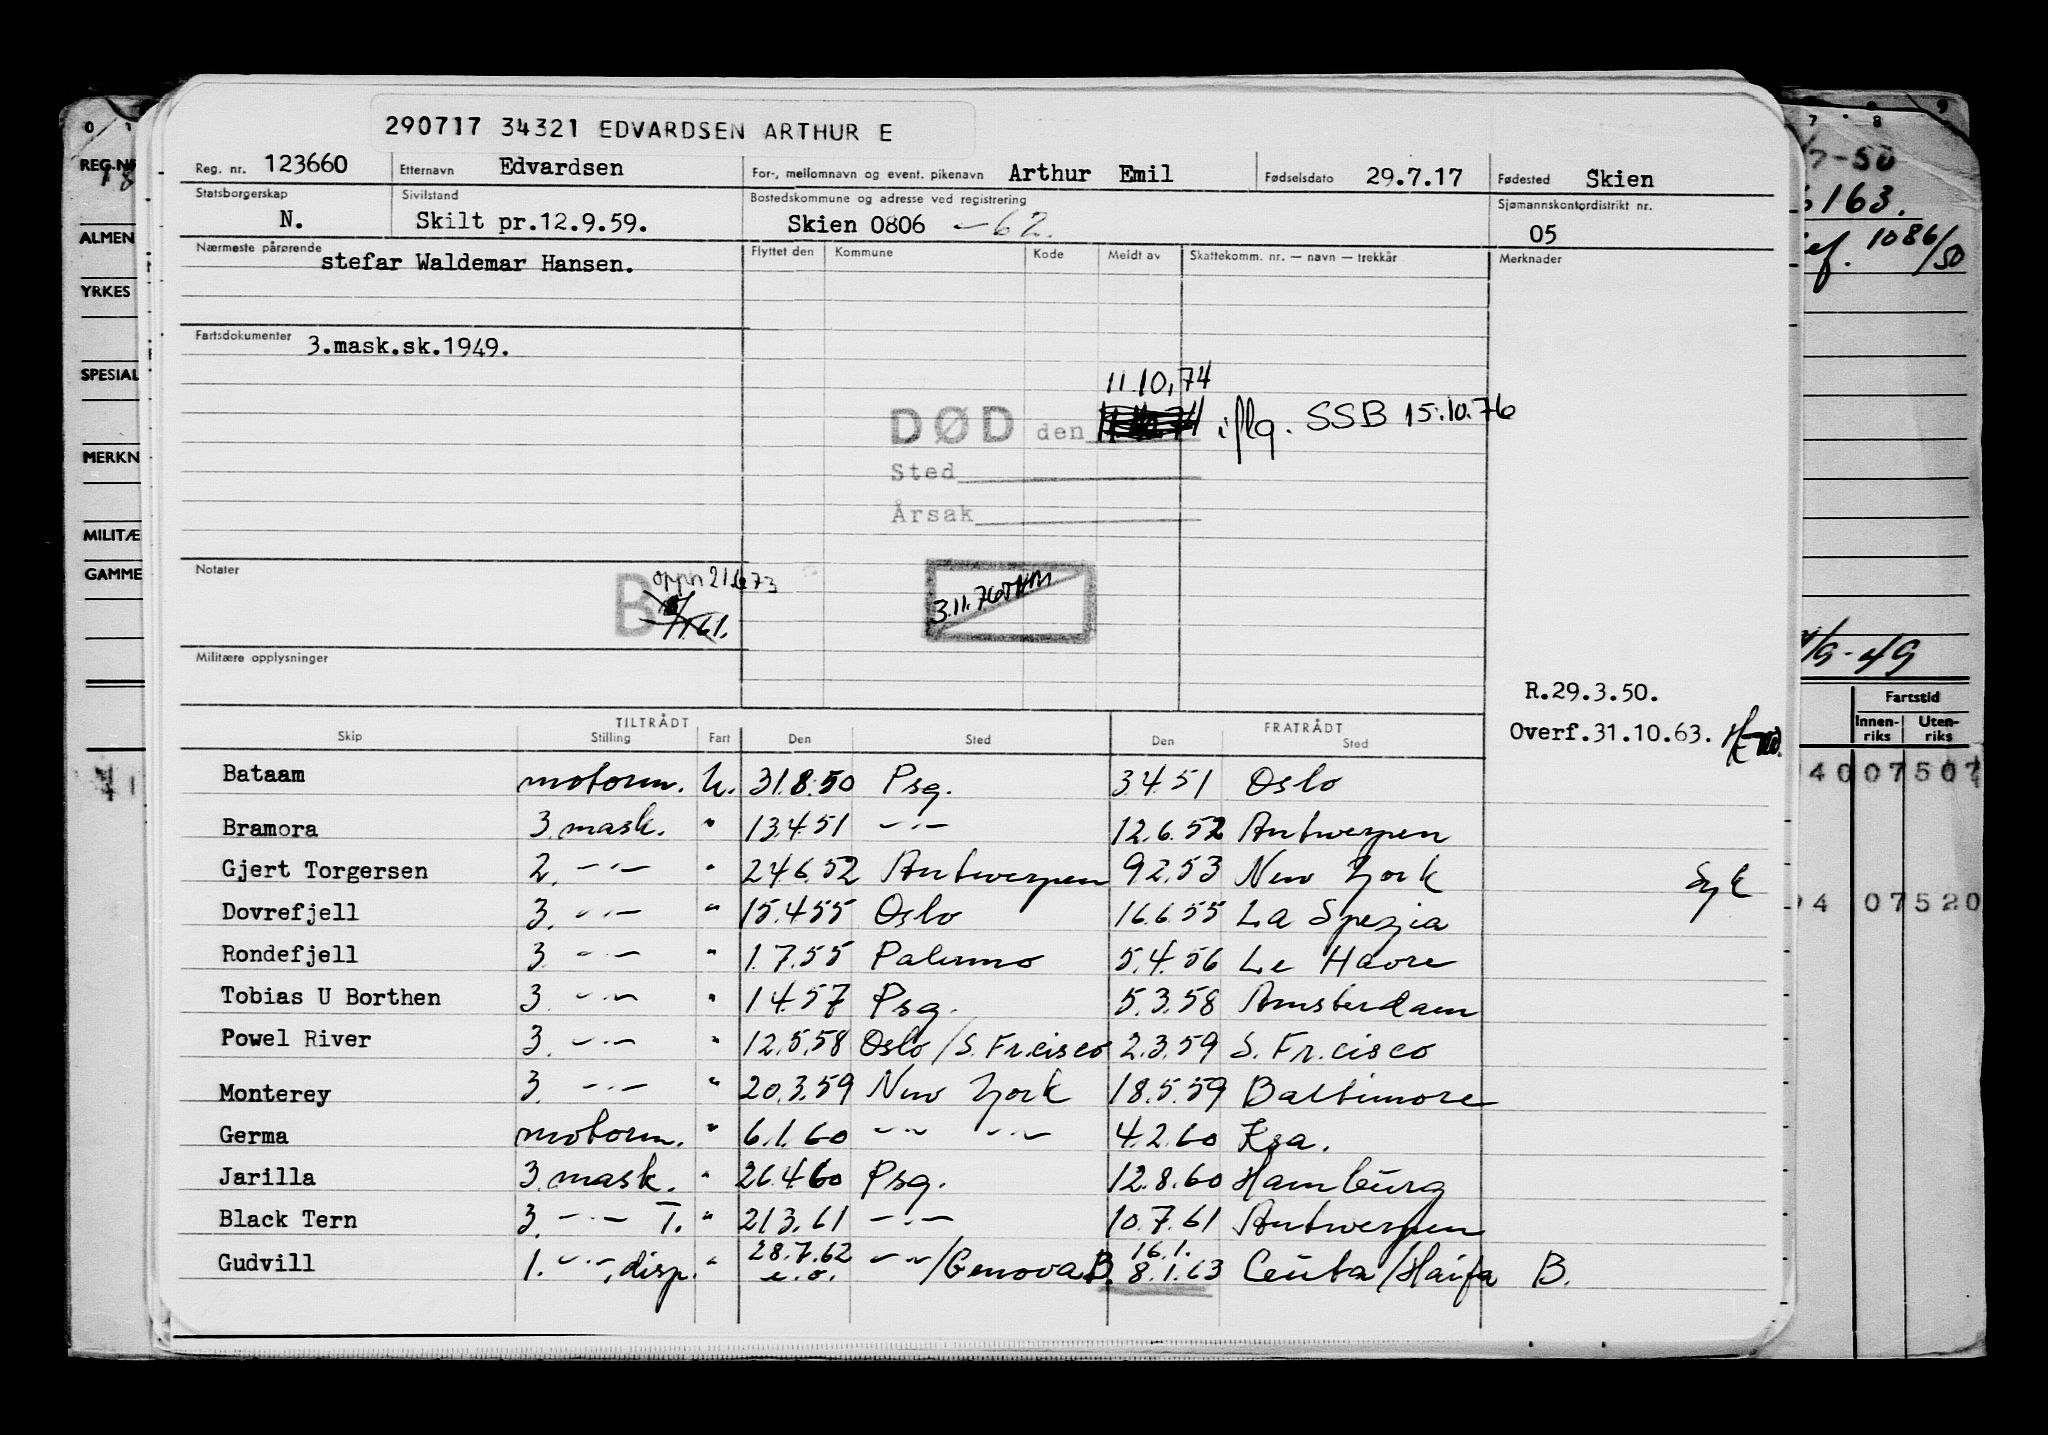 290717 34321 EDVARDSEN ARTHUR E
Reg. nr. 123660 Etternavn Edvardsen For-, mellomnavn og event. pikenavn Arthur Emil Fødselsdato 29.7.17 Fødested Skien
Statsborgerskap N. Sivilstand Skilt pr.12.9.59. Bostedskommune og adresse ved registrering Skien 0806 -62. Sjømannskontordistrikt nr. 05
Nærmeste pårørende stefar Waldemar Hansen. Flyttet den Kommune Kode Meldt av Skattekomm. nr. — navn — trekkår Merknader
Fartsdokumenter 3.mask.sk.1949.
11.10.74
DØD den iflg. SSB 15.10.76
Sted
Årsak
Notater B oppn 21.6.73
1.61.
3.11.76
Militære opplysninger
R.29.3.50.
Overf.31.10.63.
TILTRÅDT FRATRÅDT
Skip Stilling Fart Den Sted Den Sted
Bataam motorm. U. 31.8.50 Psg. 3.4.51 Oslo
Bramora 3. mask. " 13.4.51 -"- 12.6.52 Antwerpen
Gjert Torgersen 2. -"- " 24.6.52 Antwerpen 9.2.53 New York Syk
Dovrefjell 3. -"- " 15.4.55 Oslo 16.6.55 La Spezia
Rondefjell 3. -"- " 1.7.55 Palermo 5.4.56 Le Havre
Tobias U Borthen 3. -"- " 1.4.57 Psg. 5.3.58 Amsterdam
Powel River 3. -"- " 12.5.58 Oslo/S. Fr.cisco 2.3.59 S. Fr.cisco
Monterey 3. -"- " 20.3.59 New York 18.5.59 Baltimore
Germa motorm. " 6.1.60 -"- -"- 4.2.60 Ksa.
Jarilla 3. mask. " 26.4.60 Psg. 12.8.60 Hamburg
Black Tern 3. -"- T. " 21.3.61 -"- 10.7.61 Antwerpen
Gudvill 1. -"-, disp. " 28.7.62 e.o. -"-/Genova B. 16.1. 8.1.63 Ceuta/Haifa B.
REG.NR
ALMEN
YRKES
SPESIAL
MERKN
MILITÆ
GAMME
7 8 9
7-50
163.
1086/50
/9-49
Fartstid
Innenriks Utenriks
40 07507
94 07520